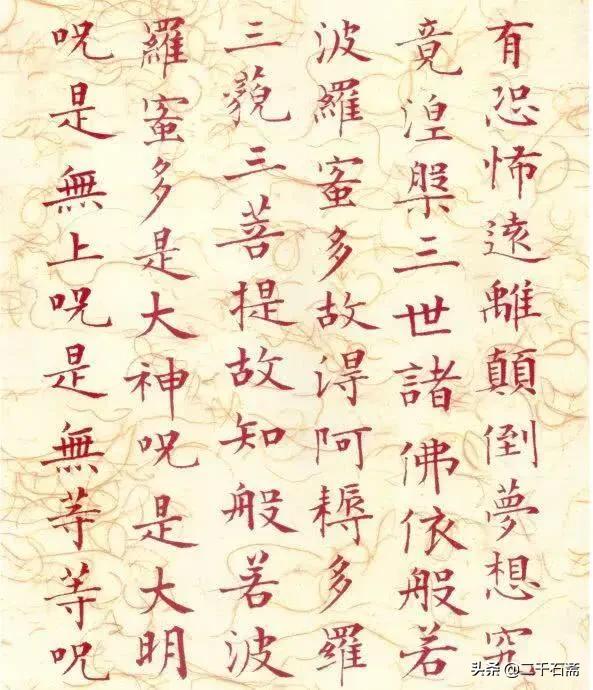 有恐怖遠離顛倒夢想究
竟涅槃三世諸佛依般若
波羅蜜多故得阿耨多羅
三藐三菩提故知般若波
羅蜜多是大神呪是大明
呪是無上呪是無等等呪
头条 @二千石斋